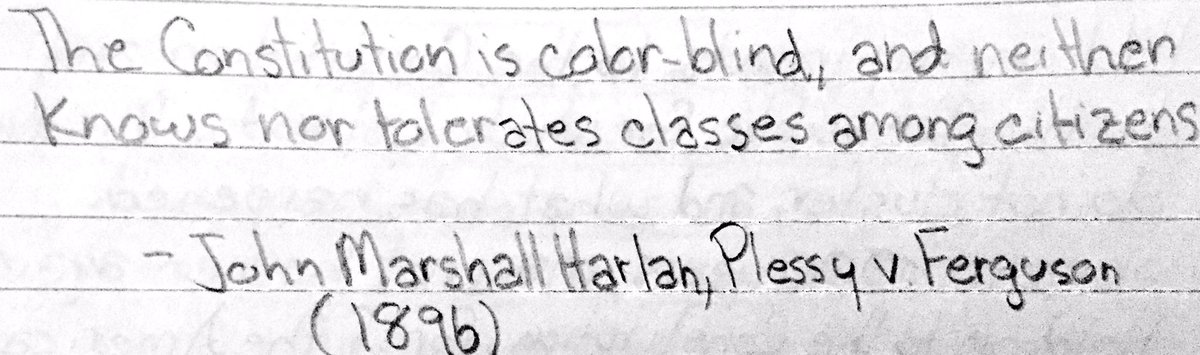 The Constitution is color-blind, and neither
Knows nor tolerates classes among citizens
- John Marshall Harlan, Plessy v. Ferguson
(1896)